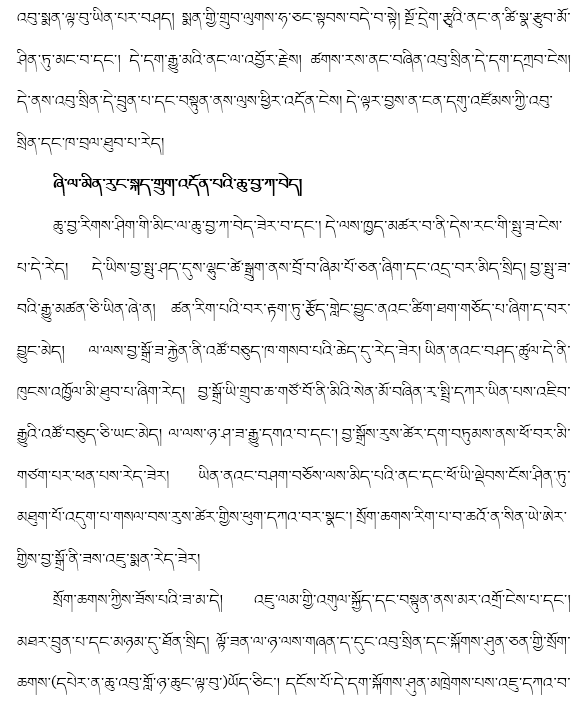 འབུ་སྨན་ལྟ་བུ་ཡིན་པར་བཤད། སྨན་གྱི་གྲུབ་ལུགས་ཧ་ཅང་སྟབས་བདེ་བ་སྟེ། སྔོ་དྲེག་རྩྭའི་ནང་ན་ཚི་སྣ་རྩུབ་མོ་
ཤིན་ཏུ་མང་བ་དང་། དེ་དག་རྒྱུ་མའི་ནང་ལ་འབྱོར་རྗེས། ཚགས་རས་ནང་བཞིན་འབུ་སྲིན་དེ་དག་དཀྲབ་ངེས།
དེ་ནས་འབུ་སྲིན་དེ་བྲུན་པ་དང་བསྟུན་ནས་ལུས་ཕྱིར་འདོན་ངེས། དེ་ལྟར་བྱས་ན་ངན་དགུ་འཛོམས་ཀྱི་འབུ་
སྲིན་དང་ཁ་བྲལ་ཐུབ་པ་རེད།
ཞི་ལ་མིན་རུང་སྐད་གྲུག་འདོན་པའི་ཆུ་བྱ་ཀ་བེད།
ཆུ་བྱ་རིགས་ཤིག་གི་མིང་ལ་ཆུ་བྱ་ཀ་བེད་ཟེར་བ་དང་། དེ་ལས་ཁྱད་མཚར་བ་ནི་དེས་རང་གི་སྤུ་ཟ་ངེས་
པ་དེ་རེད། དེ་ཡིས་བྱ་སྤུ་ཤད་དུས་ལྷུང་ཚེ་སྒྲུག་ནས་བྲོ་བ་ཞིམ་པོ་ཅན་ཞིག་དང་འདྲ་བར་མིད་སྲིད། བྱ་སྤུ་ཟ་
བའི་རྒྱུ་མཚན་ཅི་ཡིན་ཞེ་ན། ཚན་རིག་པའི་བར་རྟག་ཏུ་རྩོད་གླེང་བྱུང་ནའང་ཚིག་ཐག་གཅོད་པ་ཞིག་ད་བར་
བྱུང་མེད། ལ་ལས་བྱ་སྒྲོ་ཟ་རྐྱེན་ནི་འཚོ་བཅུད་ཁ་གསབ་པའི་ཆེད་དུ་རེད་ཟེར། ཡིན་ནའང་བཤད་ཚུལ་དེ་ནི་
ཁུངས་འཁྱོལ་མི་ཐུབ་པ་ཞིག་རེད། བྱ་སྒྲོ་ཡི་གྲུབ་ཆ་གཙོ་བོ་ནི་མིའི་སེན་མོ་བཞིན་རྭ་སྤྲི་དཀར་ཡིན་པས་འཇིབ་
རྒྱུའི་འཚོ་བཅུད་ཅི་ཡང་མེད། ལ་ལས་ཉ་ཤ་ཟ་རྒྱུ་དགའ་བ་དང་། བྱ་སྒྲོས་རུས་ཚེར་དག་བཏུམས་ནས་ཕོ་བར་མི་
གཙག་པར་ཕན་པས་རེད་ཟེར། ཡིན་ནའང་བཤག་བཅོས་ལས་མིད་པའི་ནང་དང་ཕོ་ཡི་ལྡེབས་ངོས་ཤིན་ཏུ་
མཐུག་པོ་འདུག་པ་གསལ་བས་རུས་ཚེར་གྱིས་ཕུག་དཀའ་བར་སྣང་། སྲོག་ཆགས་རིག་པ་བ་ཆའོ་ན་སིན་ཡེ་ཨེར་
གྱིས་བྱ་སྒྲོ་ནི་ཟས་འཇུ་སྨན་རེད་ཟེར།
སྲོག་ཆགས་ཀྱིས་ཟོས་པའི་ཟ་མ་དེ། འཇུ་ལམ་གྱི་འགུལ་སྐྱོད་དང་བསྟུན་ནས་མར་འགྲོ་ངེས་པ་དང་།
མཐར་བྲུན་པ་དང་མཉམ་དུ་ཐོན་སྲིད། ལྟོ་ཟན་ལ་ཉ་ལས་གཞན་ད་དུང་འབུ་སྲིན་དང་སྐོགས་ཤུན་ཅན་གྱི་སྲོག་
ཆགས་(དཔེར་ན་ཆུ་འབུ་གློ་ཉ་ཆུང་ལྟ་བུ་)ཡོད་ཅིང་། དངོས་པོ་དེ་དག་སྐོགས་ཤུན་མཁྲེགས་པས་འཇུ་དཀའ་བ་